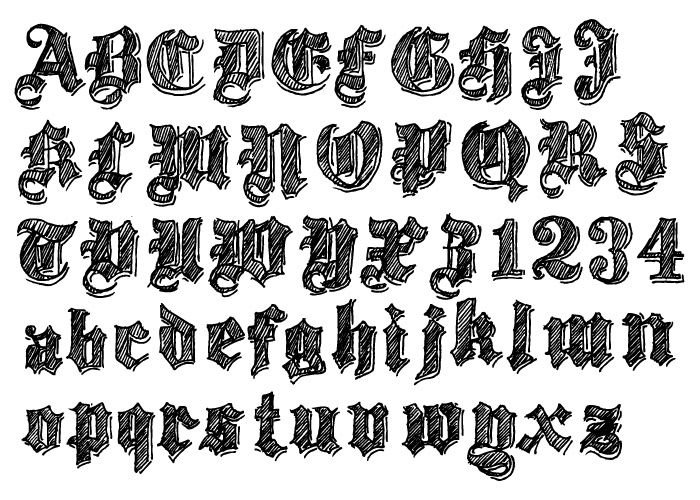 A B C D E F G H I J
K L M N O P Q R S
T U V W Y X Z 1 2 3 4
a b c d e f g h i j k l m n
o p q r s t u v w y x z